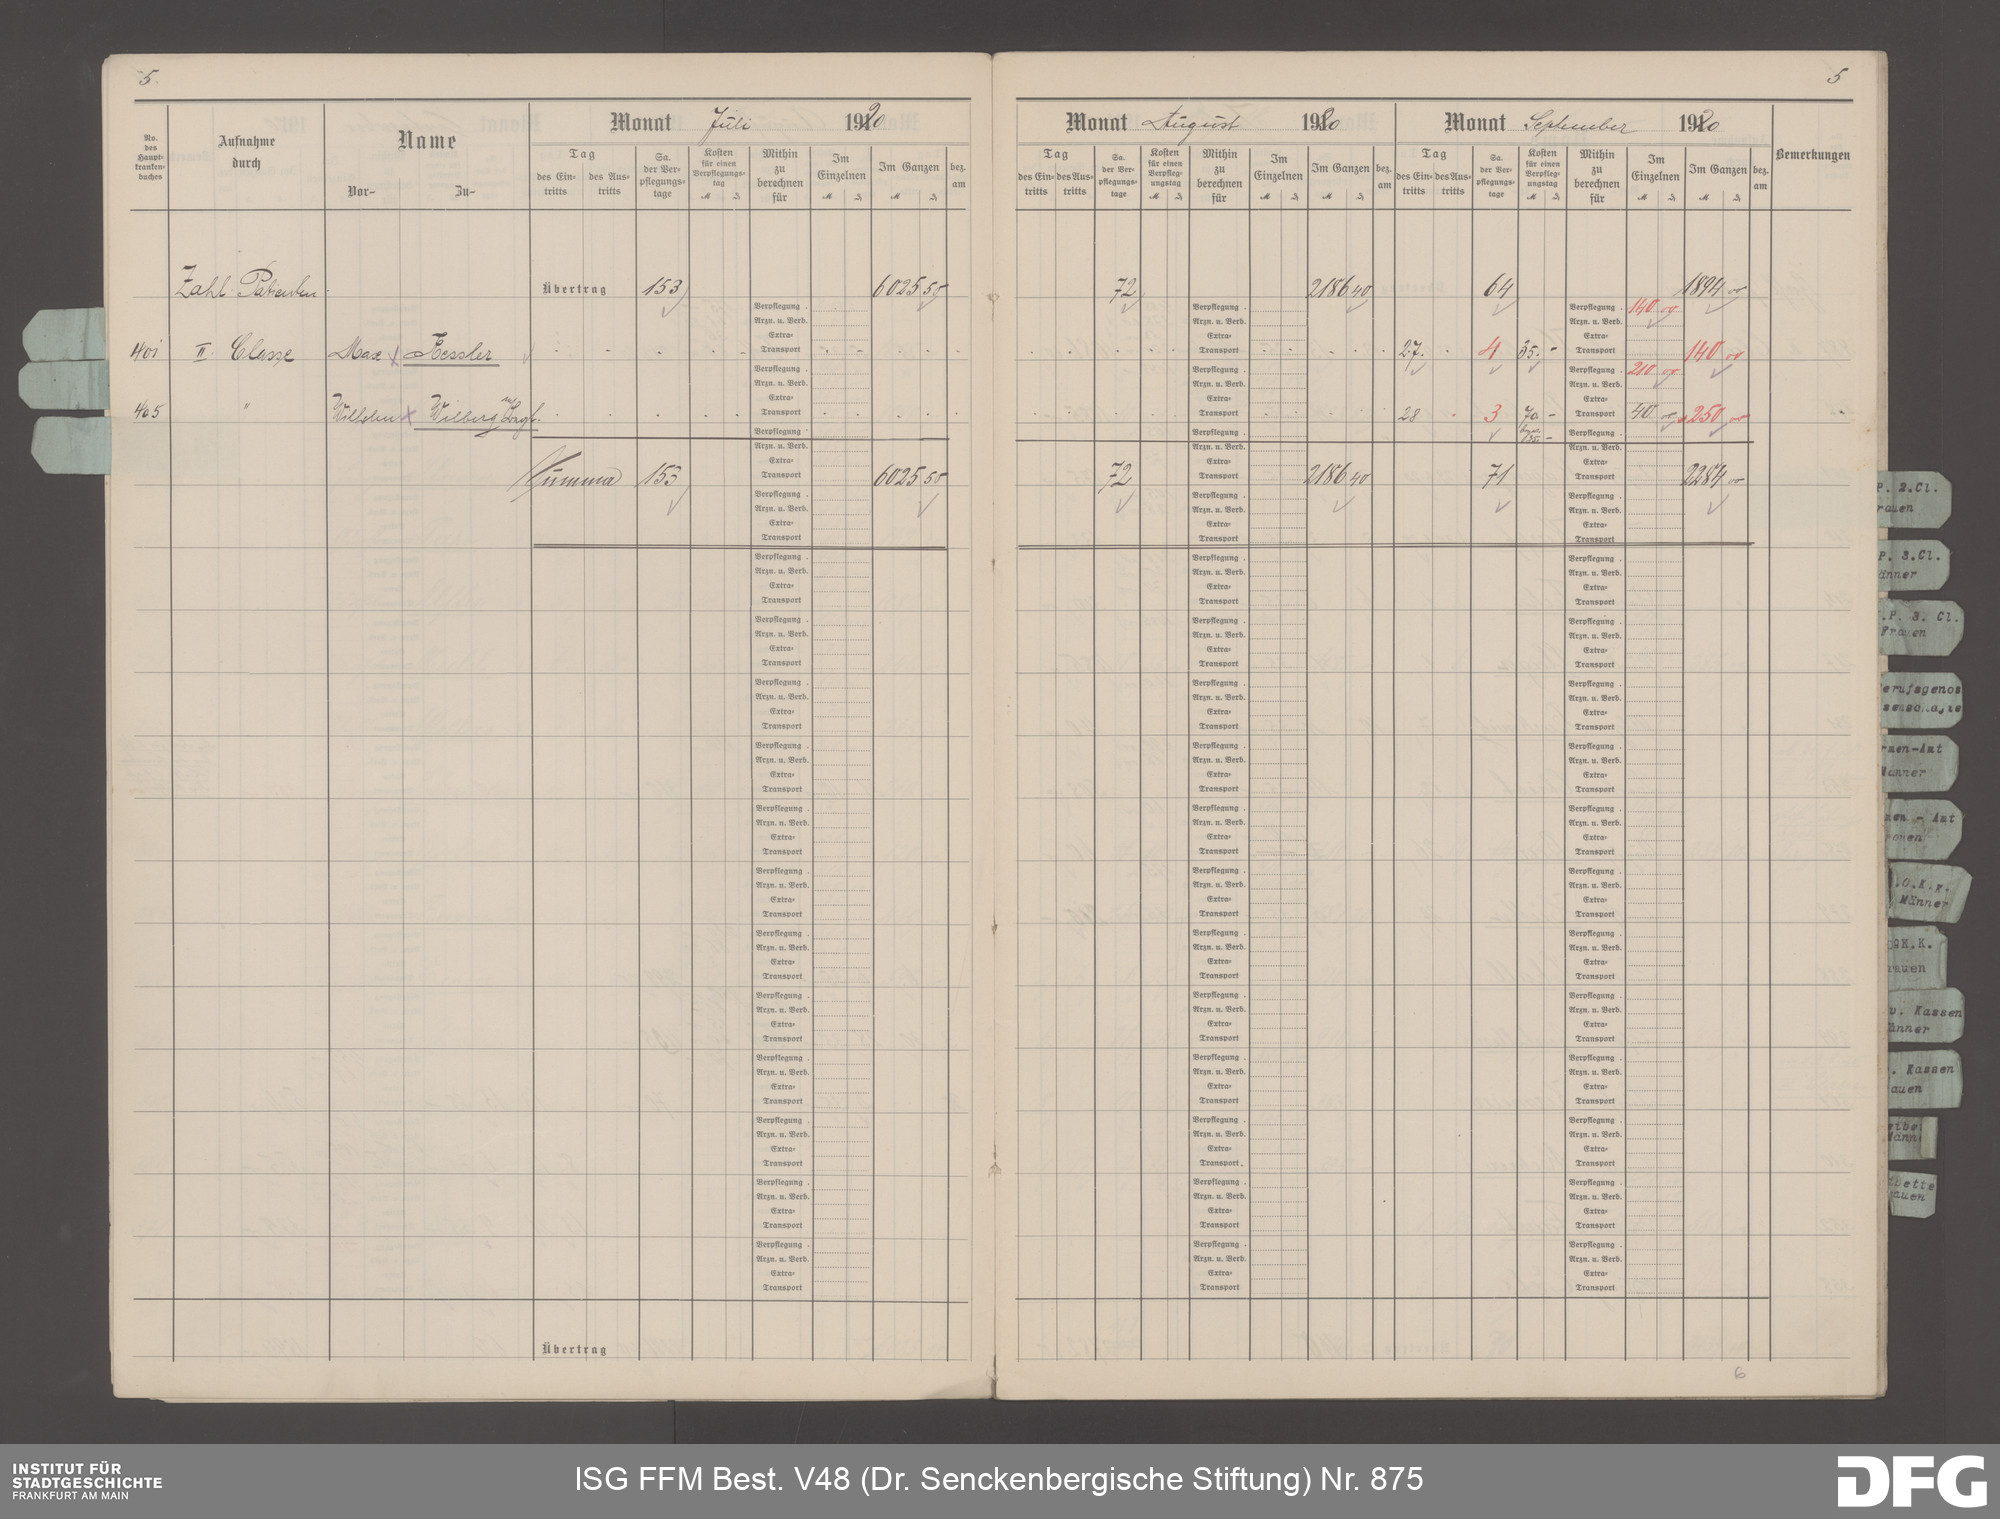 5.
5
No. des Haupt-krankenbuches
Aufnahme durch
Name
Vor-
Zu-
Monat Juli 1920
Tag
des Eintritts
des Austritts
Sa. der Verpflegungstage
Kosten für einen Verpflegungstag
Mithin zu berechnen für
Im Einzelnen
Im Ganzen
bez. am
Monat August 1920
Tag
des Eintritts
des Austritts
Sa. der Verpflegungstage
Kosten für einen Verpflegungstag
Mithin zu berechnen für
Im Einzelnen
Im Ganzen
bez. am
Monat September 1920
Tag
des Eintritts
des Austritts
Sa. der Verpflegungstage
Kosten für einen Verpflegungstag
Mithin zu berechnen für
Im Einzelnen
Im Ganzen
bez. am
Bemerkungen
Zahl. Patienten. Übertrag 153 6025 50 72 2186 40 64 1894 00
Verpflegung 140 00
Arzn. u. Verb.
Extra-
401 II. Classe Max Kessler Transport 27. 4 35.- 140 00
Verpflegung 210 00
Arzn. u. Verb.
Extra-
405 " Wilhelm Wilberg Transport 28 3 70 - 40 250 00
Verpflegung
Arzn. u. Verb.
Extra-
Summa 153 6025 50 72 2186 40 71 2284 00
Transport
Verpflegung
Arzn. u. Verb.
Extra-
Transport
Übertrag
6
P. 2.Cl.
rauen
P. 3.Cl.
änner
.P. 3. Cl.
Frauen
erufsgenos
men-Amt
Männer
en - Amt
.O.K.K.
Männer
K.K.
rauen
v. Kassen
änner
. Kassen
auen
bette
auen
INSTITUT FÜR
STADTGESCHICHTE
FRANKFURT AM MAIN
ISG FFM Best. V48 (Dr. Senckenbergische Stiftung) Nr. 875
DFG